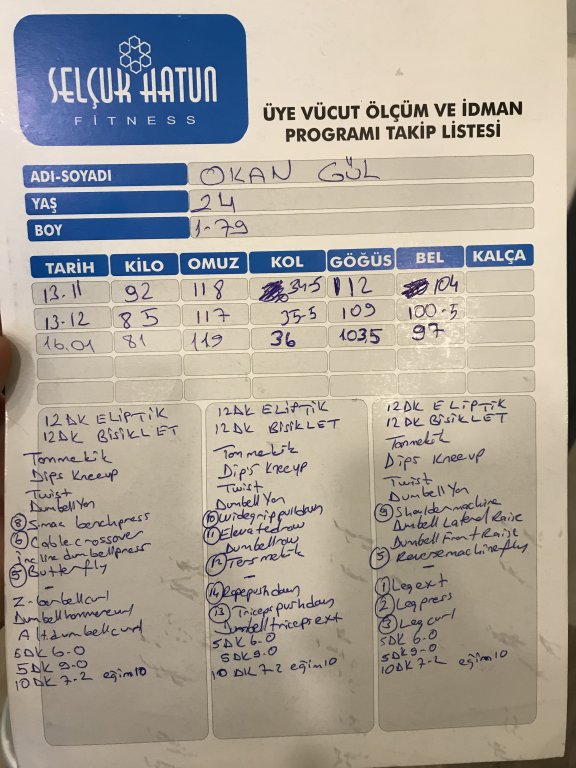 SELÇUK HATUN
FİTNESS
ÜYE VÜCUT ÖLÇÜM VE İDMAN
PROGRAMI TAKİP LİSTESİ
ADI-SOYADI OKAN GÜL
YAŞ 24
BOY 1-79
TARİH KİLO OMUZ KOL GÖĞÜS BEL KALÇA
13.11 92 118 34-5 112 104
13-12 85 117 35-5 109 100-5
16.01 81 119 36 1035 97
12DK ELİPTİK
12DK BİSİKLET
Tammekik
Dips Kneeup
Twist
DumbellYan
⑧ Smac benchpress
⑥ Cable crossover
incline dumbellpress
⑤ Butterfly
-
Z-barbellcurl
Dumbellhammercurl
Alt.dumbellcurl
5DK 6-0
5DK 9-0
10DK 7-2 eğim10
12DK ELİPTİK
12DK BİSİKLET
Tammekik
Dips Kneeup
Twist
DumbellYan
⑩ Widegrippulldown
⑪ Elevatedrow
Dumbellrow
⑫ Tersmekik
-
⑭ Ropepushdown
⑬ Tricepspushdown
Dumbelltricepsext
5DK 6-0
5DK 9-0
10DK 7-2 eğim10
12DK ELİPTİK
12DK BİSİKLET
Tammekik
Dips Kneeup
Twist
DumbellYan
Shouldermachine
Dumbell Lateral Raise
Dumbell Front Raise
⑤ Reversemachinefly
-
① Legext
② Legpress
③ Legcurl
5DK 6-0
5DK 9-0
10DK 7-2 eğim10